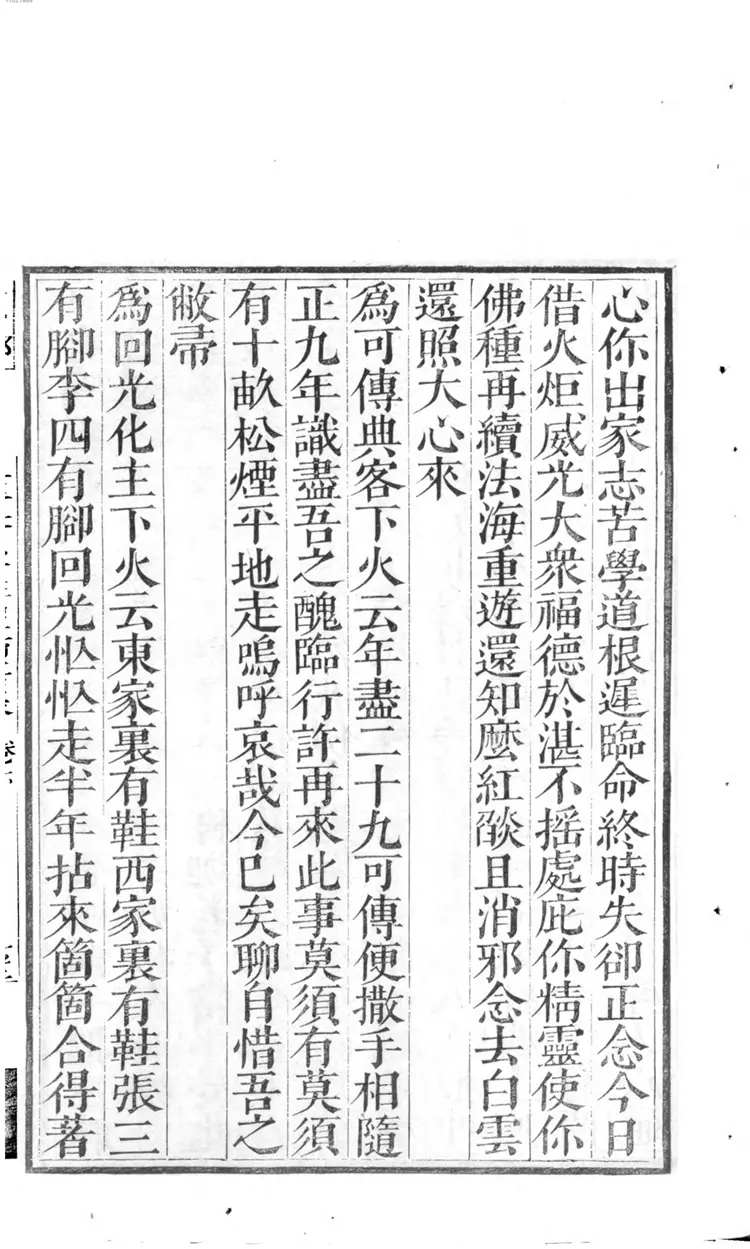 心你出家志苦學道根遲臨命終時失卻正念今日
借火炬威光大衆福德於湛不搖處庇你精靈使你
佛種再續法海重遊還知麽紅燄且消邪念去白雲
還照大心來
爲可傳典客下火云年盡二十九可傳便撒手相隨
正九年識盡吾之醜臨行許再來此事莫須有莫須
有十畝松煙平地走嗚呼哀哉今已矣聊自惜吾之
敝帚
爲回光化主下火云東家裏有鞋西家裏有鞋張三
有腳李四有腳回光忷忷走半年拈來箇箇合得著